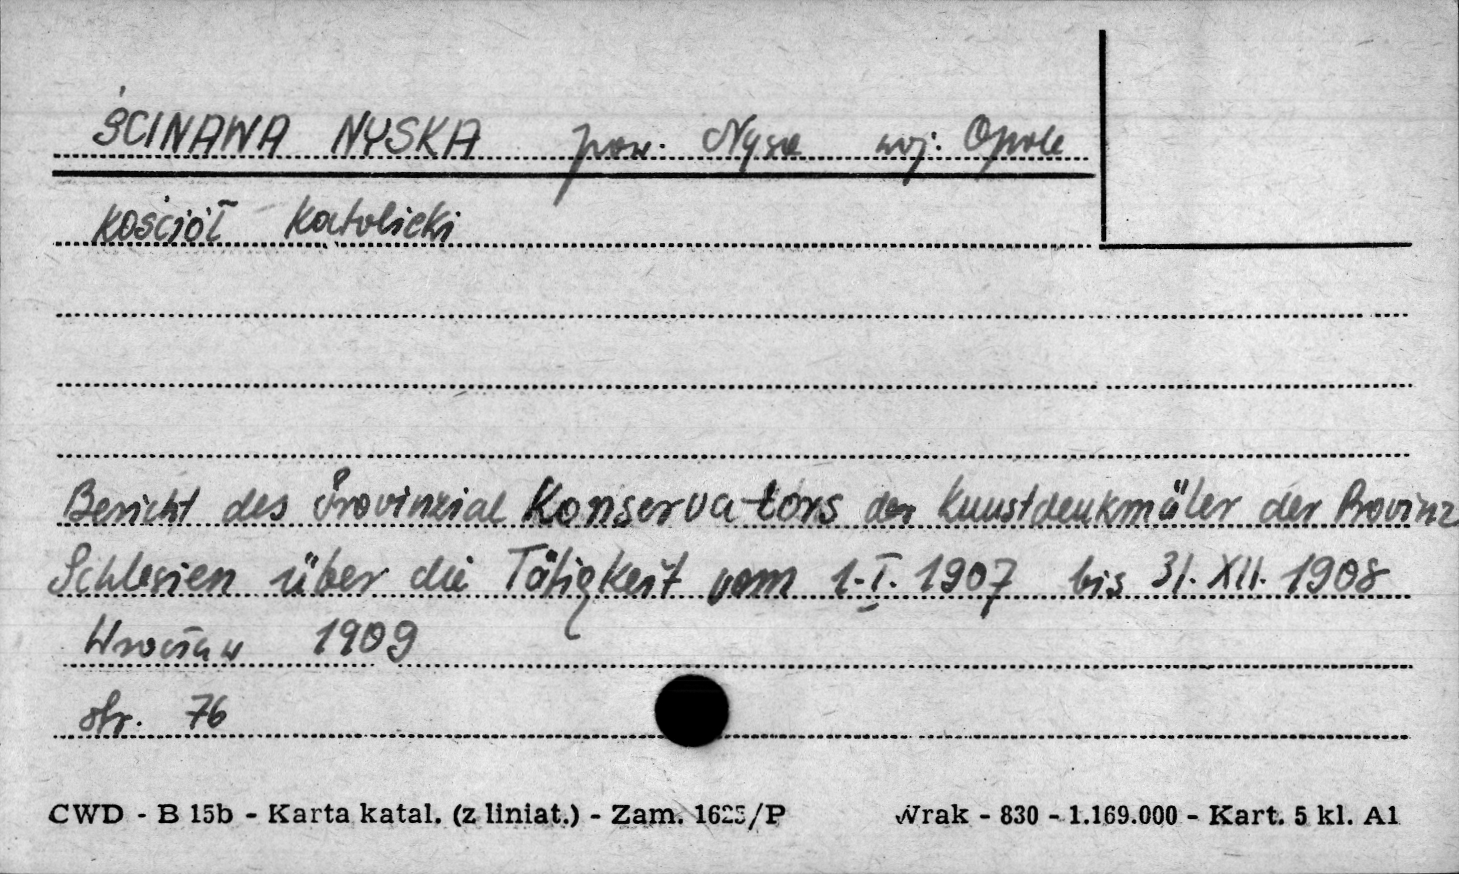 ŚCINAWA NYSKA pow. Nysa woj. Opole
Kościół Katolicki
Bericht des Provinzial Konservators der Kunstdenkmäler der Provinz
Schlesien über die Tätigkeit vom 1.I.1907 bis 31.XII.1908
Wrocław 1909
str. 76
CWD - B 15b - Karta katal. (z liniat.) - Zam. 1625/P Wrak - 830 - 1.169.000 - Kart. 5 kl. A1